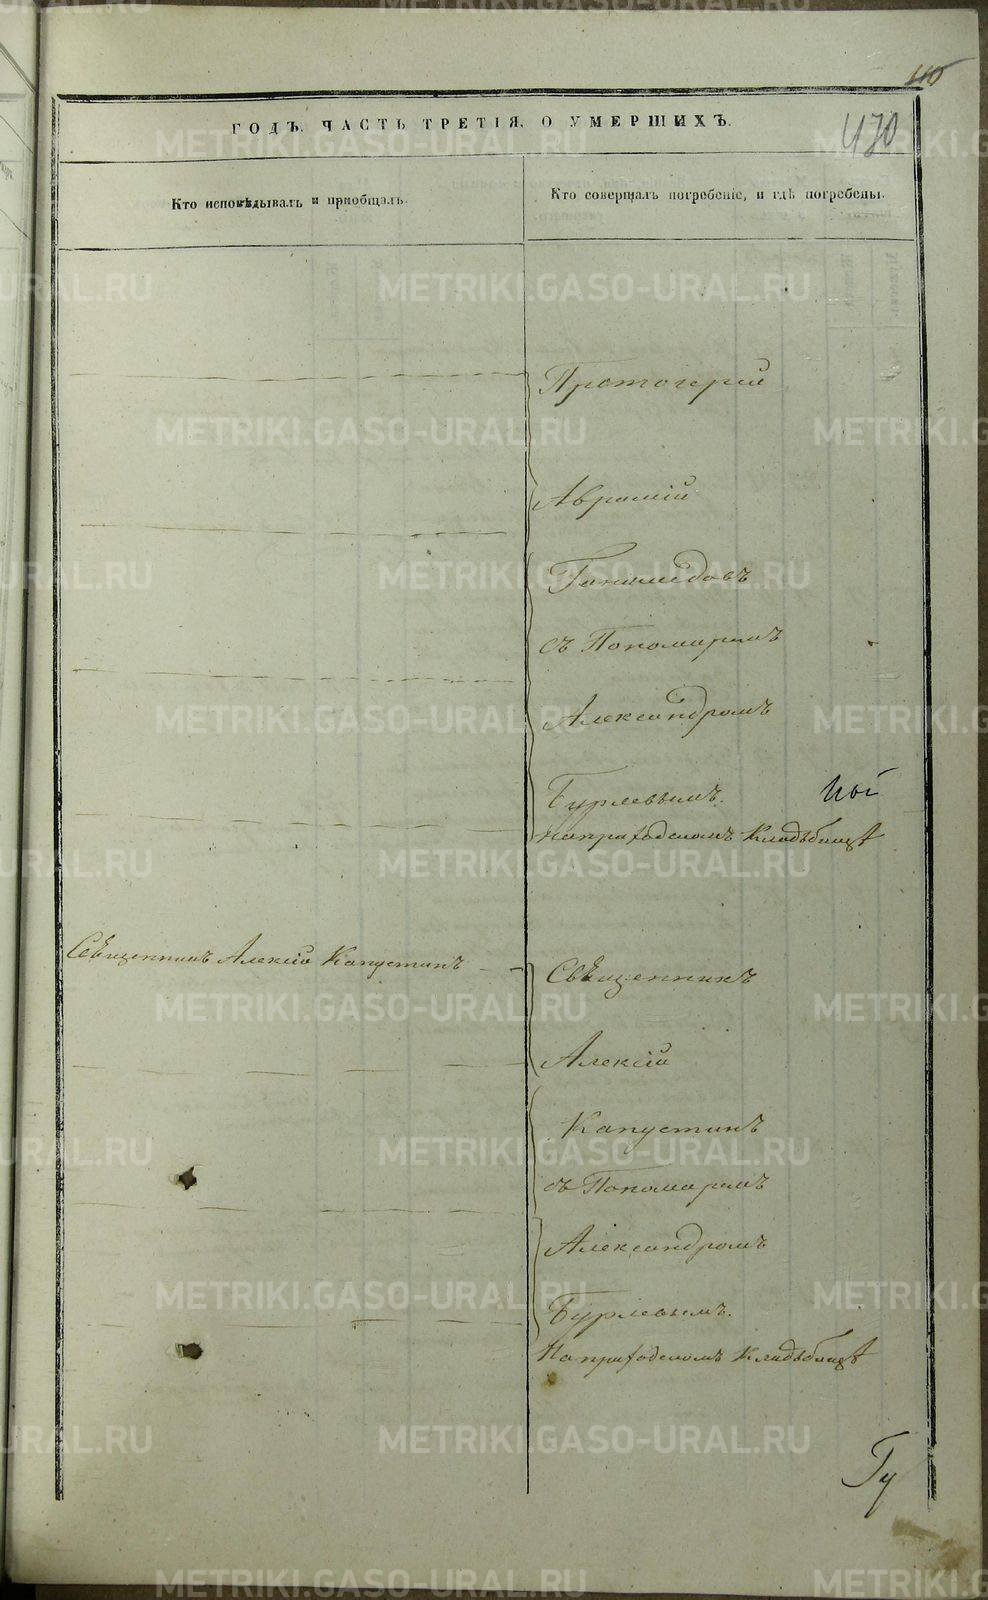 110
430
ГОДЪ. ЧАСТЬ ТРЕТІЯ, О УМЕРШИХЪ.
Кто исповѣдывалъ и пріобщалъ.
Кто совершалъ погребеніе, и гдѣ погребены.
Протоіерей
Аврамій
Ганимедовъ
съ Пономаремъ
Александромъ
Бурлевымъ.
ной
на приходскомъ Кладьбищѣ
Священникъ Алексій Капустинъ
Священникъ
Алексій
Капустинъ
съ Пономаремъ
Александромъ
Бурлевымъ.
На приходскомъ Кладьбищѣ
METRIKI.GASO-URAL.RU